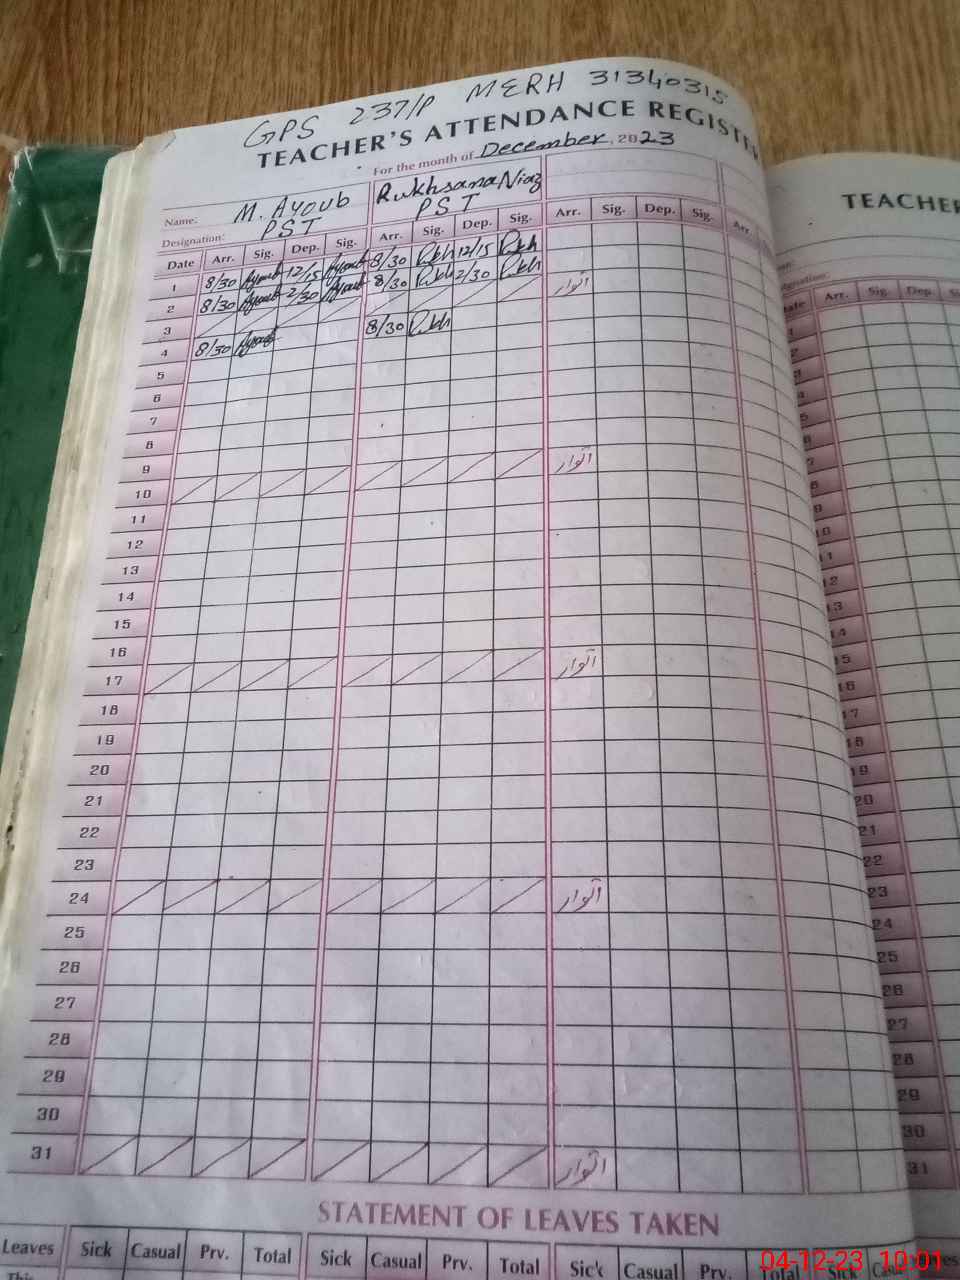 GPS 237/P MERH 31340315
TEACHER'S ATTENDANCE REGISTER
For the month of December, 2023
Name: M. Ayoub Rukhsana Niaz
Designation: PST PST
Date Arr. Sig. Dep. Sig. Arr. Sig. Dep. Sig. Arr. Sig. Dep. Sig. Arr.
1 8/30 Ayoub 12/15 Ayoub 8/30 Rukh 12/15 Rukh
2 8/30 Ayoub 2/30 Ayoub 8/30 Rukh 2/30 Rukh
3 اتوار
4 8/30 Ayoub 8/30 Rukh
5
6
7
8
9
10 اتوار
11
12
13
14
15
16
17 اتوار
18
19
20
21
22
23
24 اتوار
25
26
27
28
29
30
31 اتوار
STATEMENT OF LEAVES TAKEN
Leaves Sick Casual Prv. Total Sick Casual Prv. Total Sick Casual Prv. Total Sick
This
TEACHER
Arr. Sig. Dep.
12
13
15
16
17
18
19
20
21
22
23
24
25
26
27
28
29
30
31
04-12-23 10:01